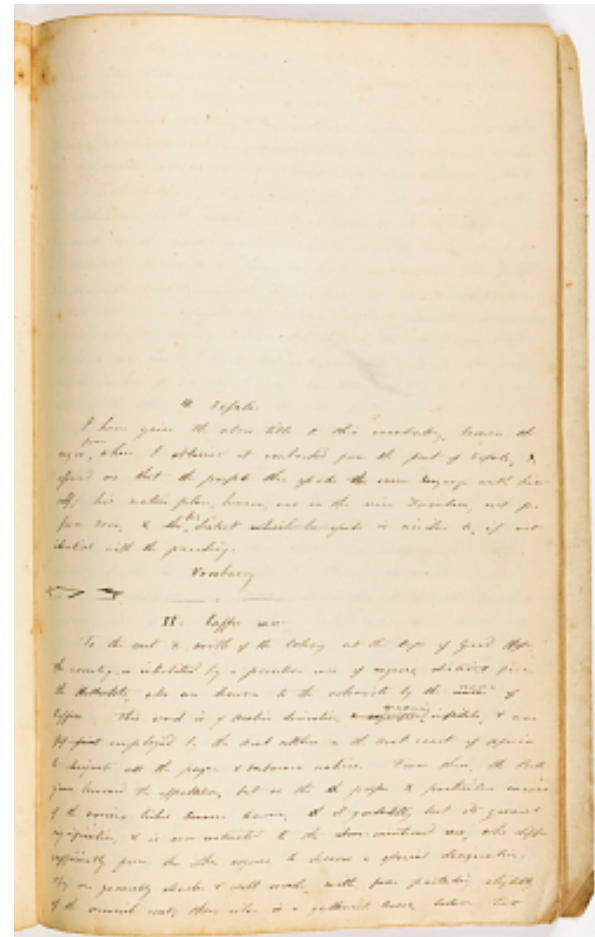 Sofala.
I have given the above title to this vocabulary, because the
negro, from whom I obtained it embarked from the port of Sofala, &
assured me that the people there speak the same language with him-
self; his native place, however, was on the river Zambezi, not far
from Sena, & the dialect which he speaks is similar to, if not
identical with the preceding.
Vocabulary
II. Caffre race
To the east & north of the Colony at the Cape of Good Hope
the country is inhabited by a peculiar race of negroes, distinct from
the Hottentots, who are known to the colonists by the name of
Caffres. This word is of Arabic derivation, meaning infidels, & was
first employed by the Arab settlers on the east coast of Africa
to designate all the pagan & barbarous natives. From them, the
the appellation, but as the people & particular names
of the various tribes became known, it gradually lost its general
signification, & is now restricted to the above-mentioned race, who differ
sufficiently from the other negroes to deserve a special designation.
They are generally slender & well made, with
of the colour is a yellowish brown, between that